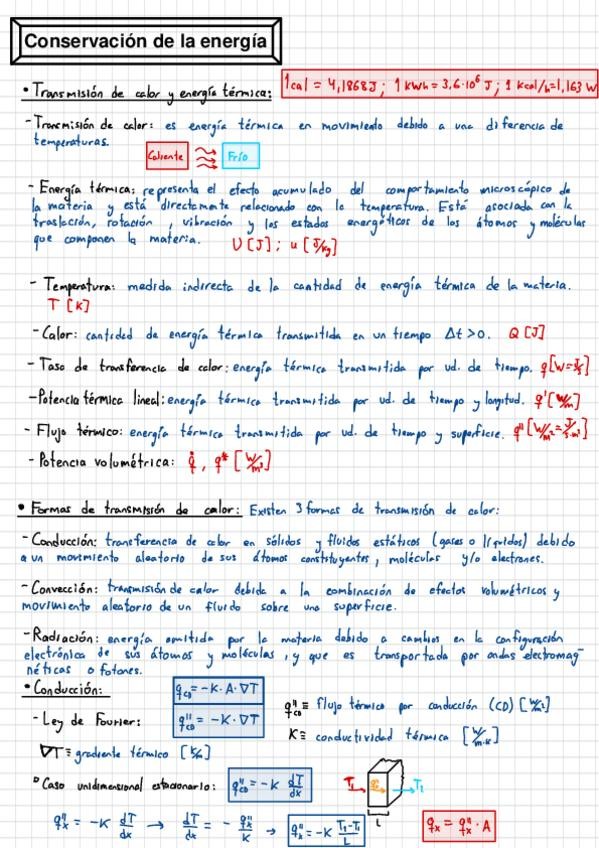 Conservación de la energía
• Transmisión de calor y energía térmica: 1cal = 4,1868J ; 1 kWh = 3,6·10⁶ J ; 1 kcal/h=1,163 W
- Transmisión de calor: es energía térmica en movimiento debido a una diferencia de
temperaturas.
Caliente Frío
- Energía térmica: representa el efecto acumulado del comportamiento microscópico de
la materia y está directamente relacionado con la temperatura. Está asociada con la
traslación, rotación, vibración y los estados energéticos de los átomos y moléculas
que componen la materia. U [J] ; u [J/kg]
- Temperatura: medida indirecta de la cantidad de energía térmica de la materia.
T [K]
- Calor: cantidad de energía térmica transmitida en un tiempo Δt >0. Q [J]
- Tasa de transferencia de calor: energía térmica transmitida por ud. de tiempo. q [W=J/s]
- Potencia térmica lineal: energía térmica transmitida por ud. de tiempo y longitud. q' [W/m]
- Flujo térmico: energía térmica transmitida por ud. de tiempo y superficie. q'' [W/m²=J/s·m²]
- Potencia volumétrica: q̇, q* [W/m³]
• Formas de transmisión de calor: Existen 3 formas de transmisión de calor:
- Conducción: transferencia de calor en sólidos y fluidos estáticos (gases o líquidos) debido
a un movimiento aleatorio de sus átomos constituyentes, moléculas y/o electrones.
- Convección: transmisión de calor debida a la combinación de efectos volumétricos y
movimiento aleatorio de un fluido sobre una superficie.
- Radiación: energía emitida por la materia debido a cambios en la configuración
electrónica de sus átomos y moléculas, y que es transportada por ondas electromag-
néticas o fotones.
• Conducción: q_CD = -K·A·∇T
- Ley de Fourier: q''_CD = -K·∇T
q''_CD ≡ flujo térmico por conducción (CD) [W/m²]
K ≡ conductividad térmica [W/m·K]
∇T ≡ gradiente térmico [K/m]
° Caso unidimensional estacionario: q''_CD = -K dT/dx
T₁ q'' T₂
L
q''_x = -K dT/dx → dT/dx = - q''_x/K → q''_x = -K T₂-T₁/L
q_x = q''_x · A